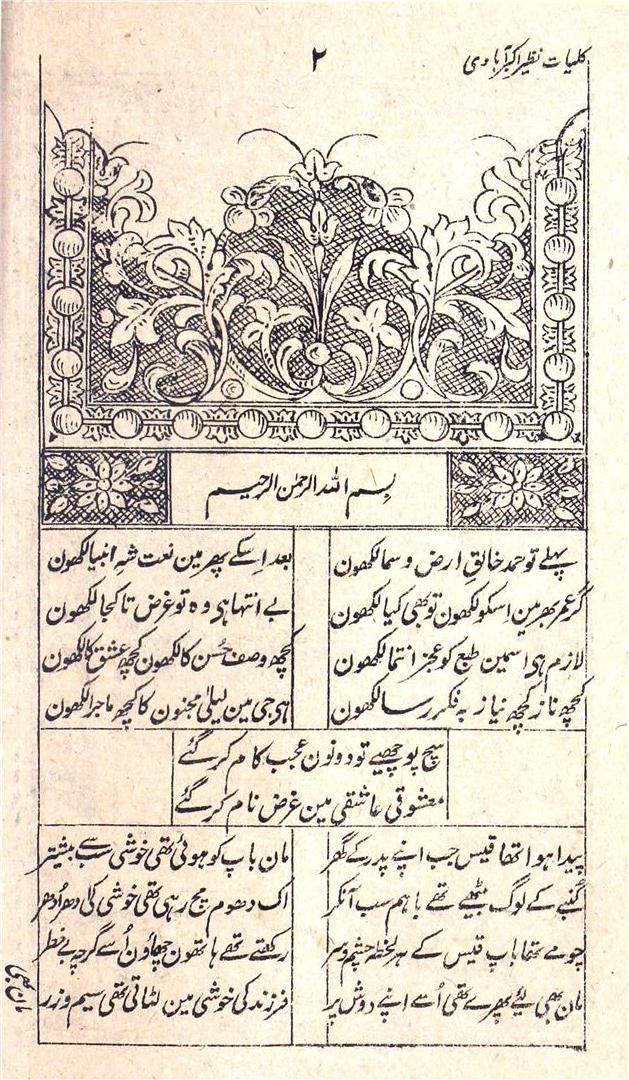 کلیات نظیر اکبرآبادی
۲
بسم اللہ الرحمٰن الرحیم
پہلے تو حمد خالق ارض و سما لکھون
بعد اسکے پھر مین نعت شہ انبیا لکھون
گر عمر بھر مین اسکو لکھون تو بھی کیا لکھون
بے انتہا ہی وہ تو غرض تا کجا لکھون
لازم ہی اسمین طبع کو عجز انتما لکھون
کچھ وصف حُسن کا لکھون کچھ عشق کا لکھون
کچھ ناز کچھ نیاز بہ فکر رسا لکھون
ہی جی مین لیلیٰ مجنون کا کچھ ماجرا لکھون
سچ پوچھیے تو دونون عجب کام کر گئے
معشوقی عاشقی مین غرض نام کر گئے
پیدا ہوا تھا قیس جب اپنے پدر کے گھر
مان باپ کو ہوئی تھی خوشی سب سے بیشتر
کُنبے کے لوگ بیٹھے تھے باہم سب آنکر
اک دھوم مچ رہی تھی خوشی کی ادھر اُدھر
چومے تھا باپ قیس کے ہر لحظہ چشم و سر
رکھتے تھے ہاتھون چھاؤن اُسے گرچہ بے خطر
مان بھی لیے پھرے تھی اُسے اپنے دوش پر
فرزند کی خوشی مین لٹاتی تھی سیم و زر
مان بھی